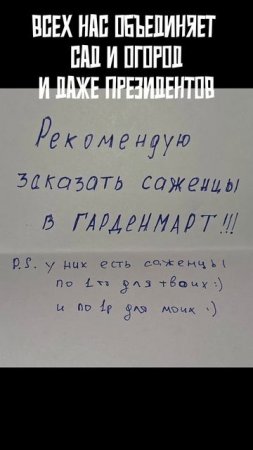 ВСЕХ НАС ОБЪЕДИНЯЕТ
САД И ОГОРОД
И ДАЖЕ ПРЕЗИДЕНТОВ
Рекомендую
заказать саженцы
в ГАРДЕНМАРТ!!!
P.S. у них есть саженцы
по 1тз для твоих :)
и по 1р для моих :)